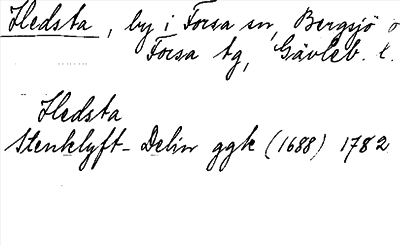 Hedsta, by i Forsa sn, Bergsjö o
Forsa tg, Gävleb. l.
Hedsta
Stenklyft- Delin ggk (1688) 1782